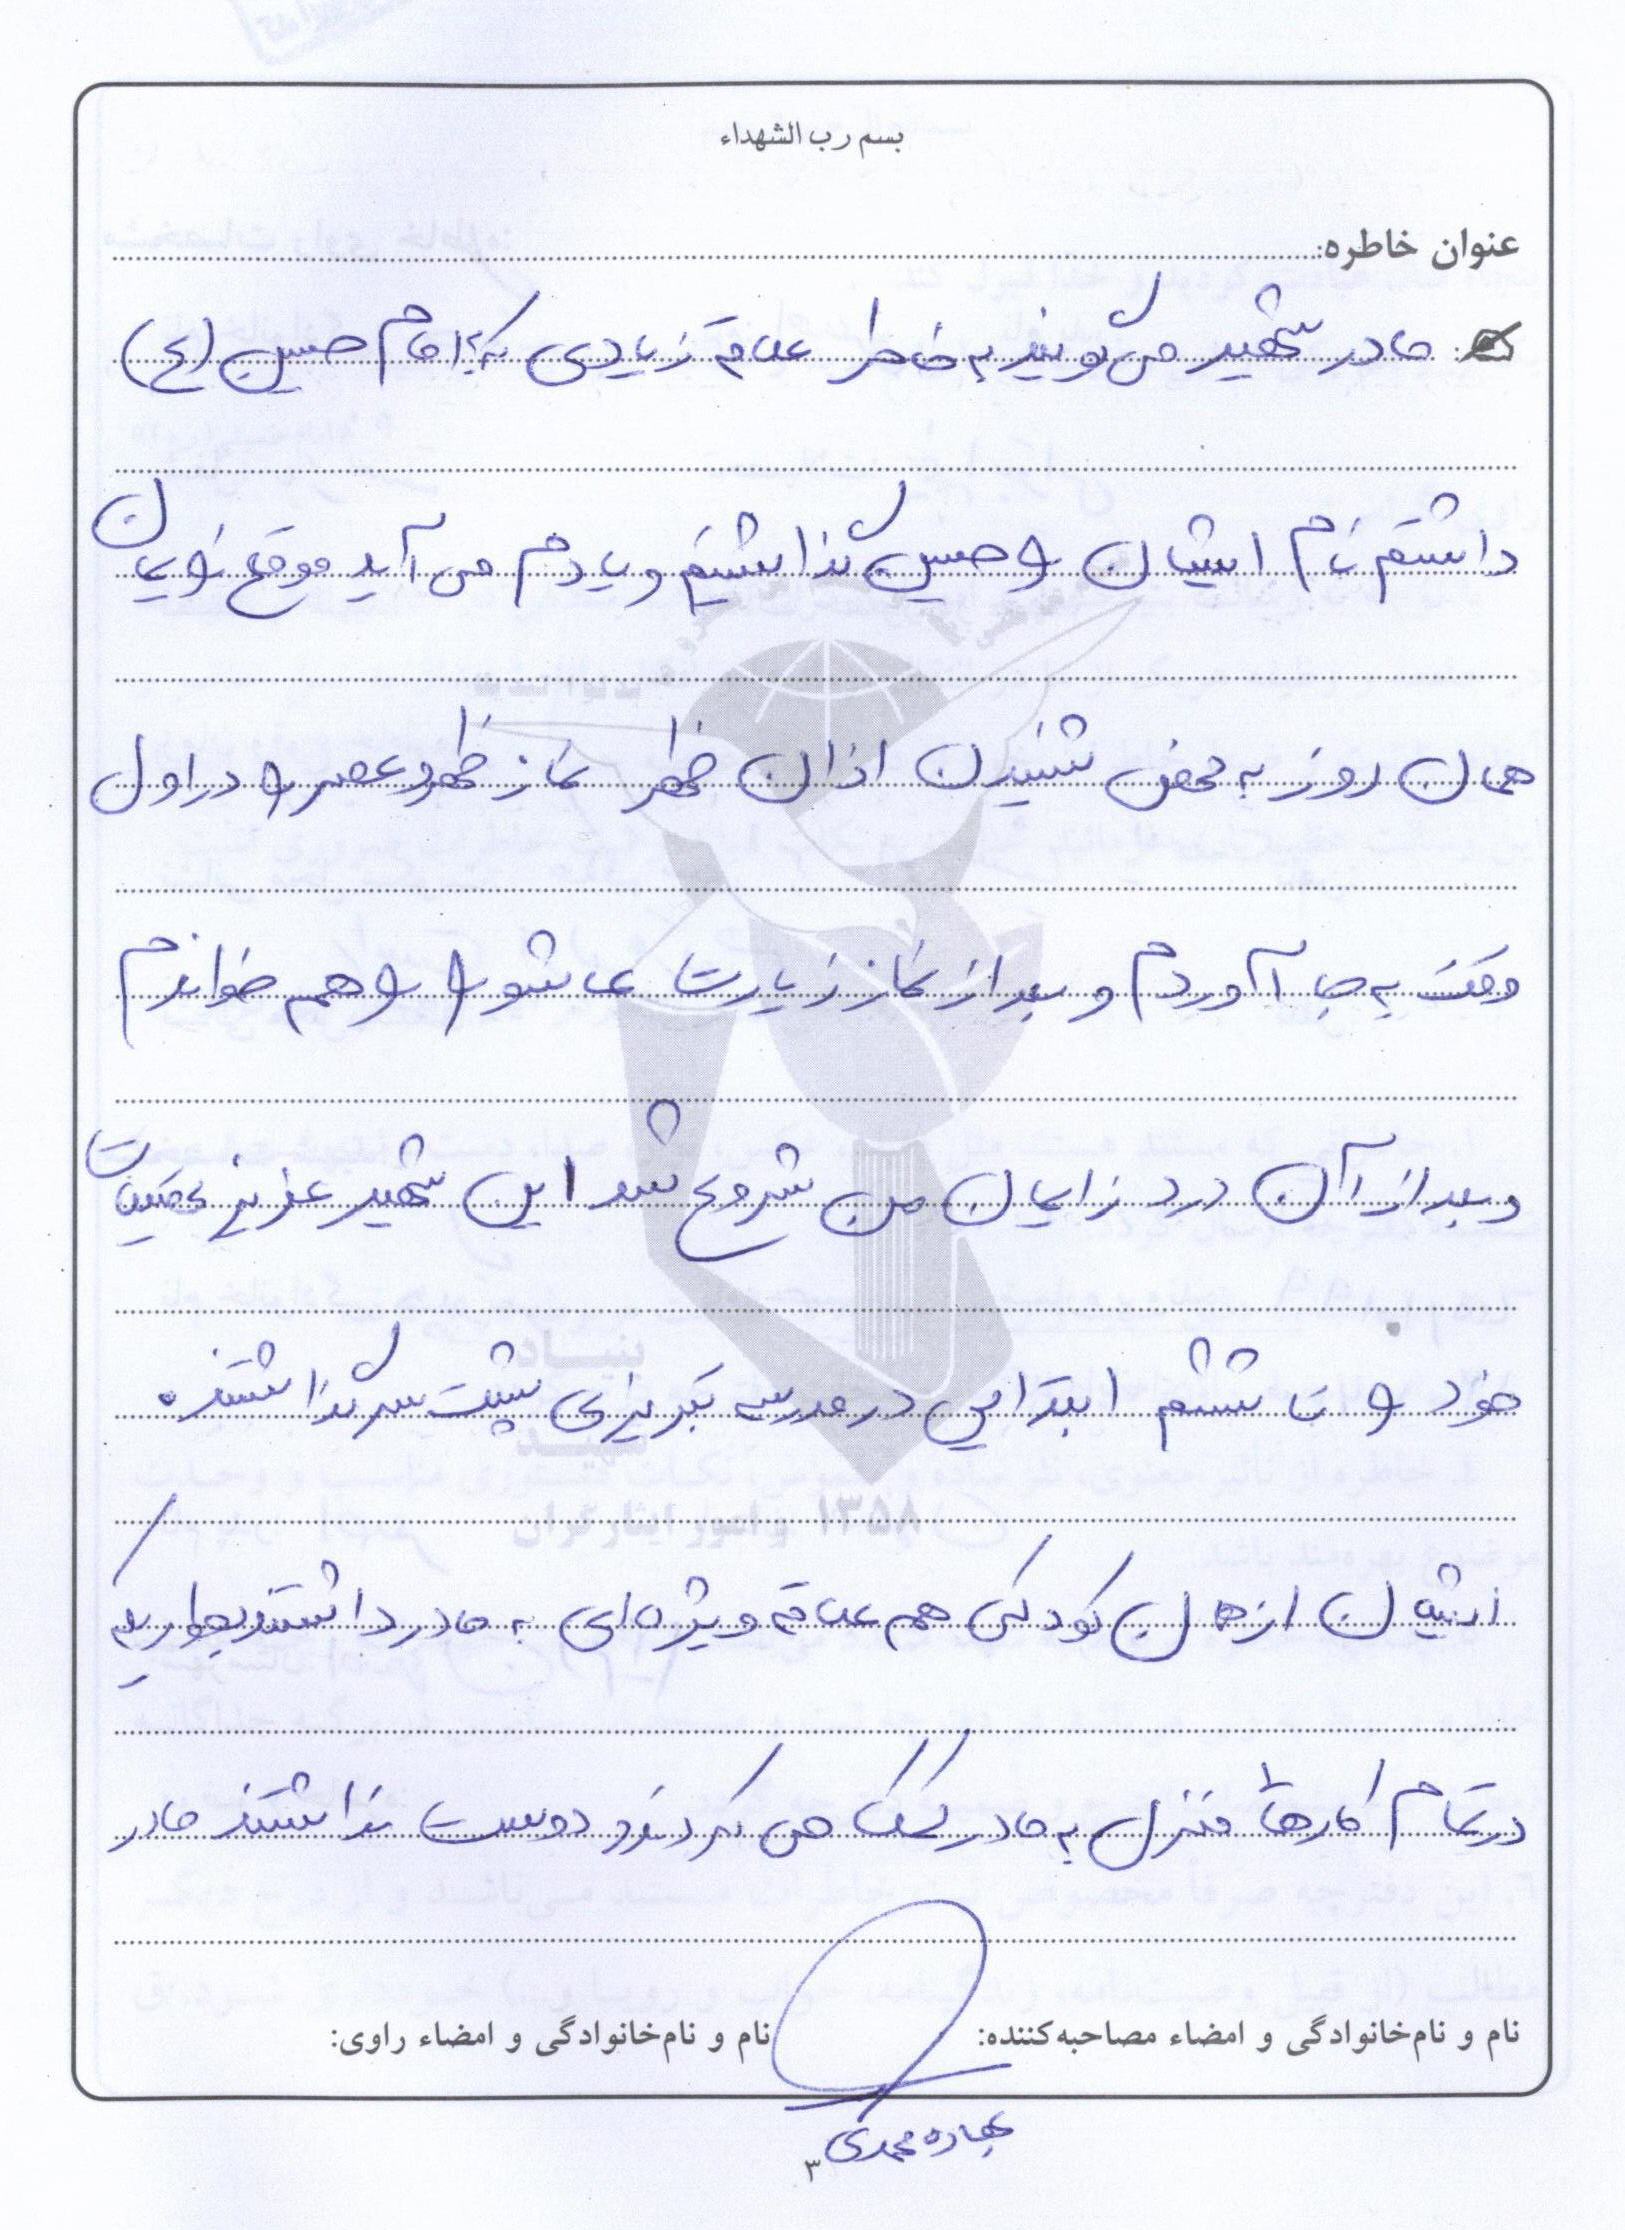 بسم رب الشهداء
عنوان خاطره:
مادر شهید می گویند به خاطر علاقه زیادی که به امام حسین (ع)
داشتم نام ایشان را حسین گذاشتیم و یادم می آید موقع زایمان
همان روز به محض شنیدن اذان ظهر نماز ظهر و عصر را در اول
وقت به جا آوردم و بعد از نماز زیارت عاشورا را هم خواندم
و بعد از آن درد زایمان من شروع شد این شهید عزیز تحصیلات
خود را تا ششم ابتدایی در مدرسه تبریزی پشت سر گذاشتند
ایشان از همان کودکی هم علاقه ویژه ای به مادر داشتند بطوریکه
در تمام کارهای منزل به مادر کمک می کردند و دوست نداشتند مادر
نام و نام‌خانوادگی و امضاء مصاحبه‌کننده:
نام و نام‌خانوادگی و امضاء راوی:
بهاره محمدی
۳
بنیاد
شهید
و امور ایثارگران
۱۳۵۸